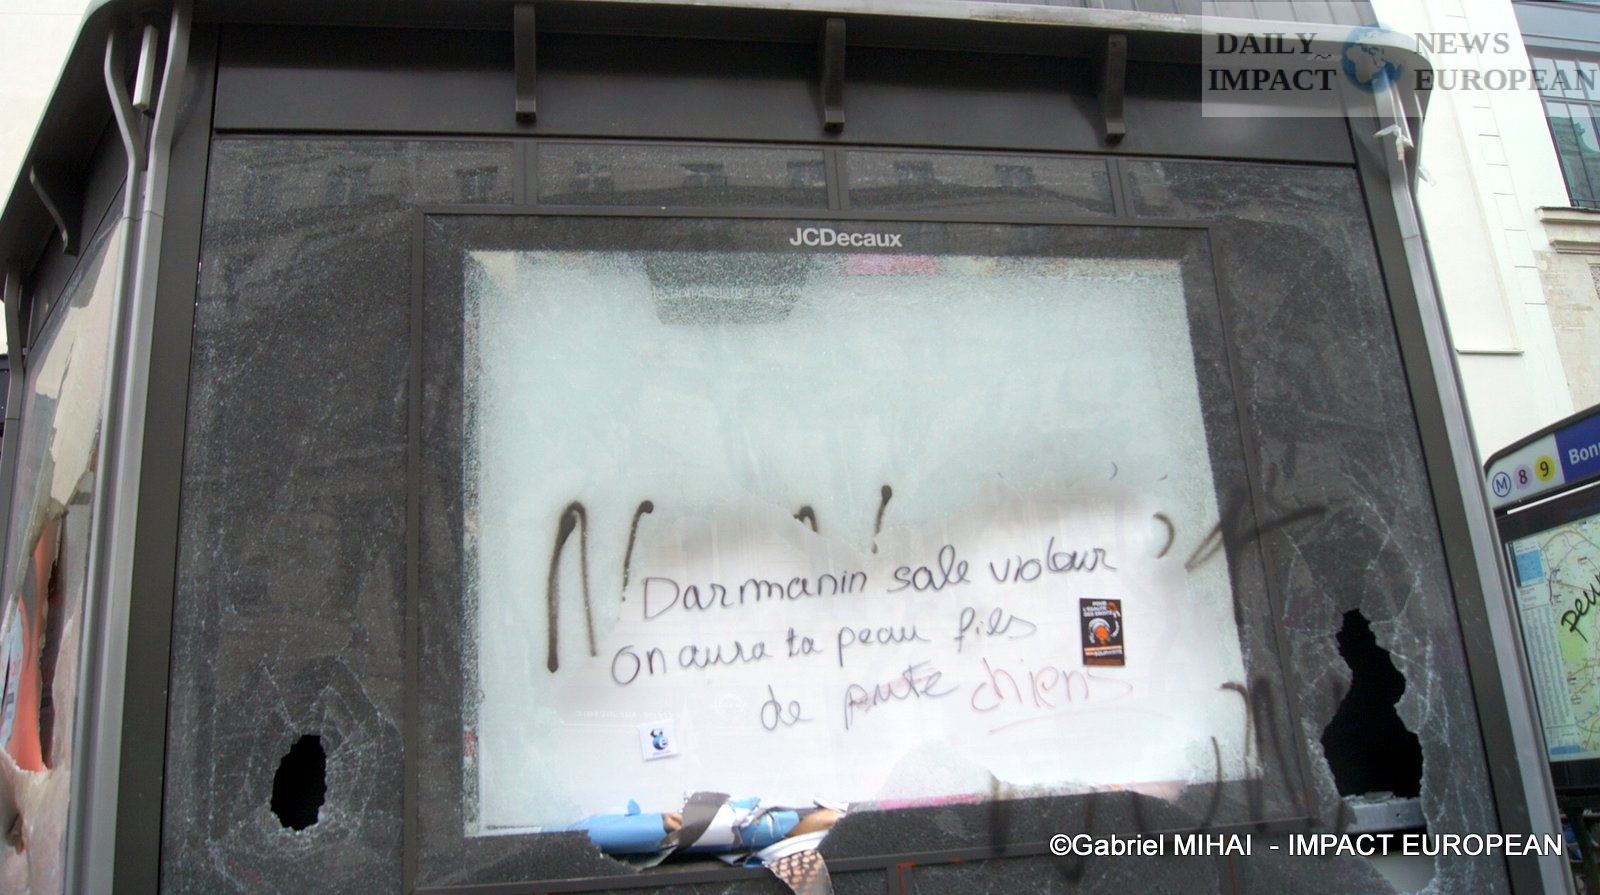 DAILY NEWS
IMPACT EUROPEAN
JCDecaux
Darmanin sale violeur
on aura ta peau fils
de pute chiens
POUR
L'ÉGALITÉ
DES DROITS
M 8 9 Bonn
peur
©Gabriel MIHAI - IMPACT EUROPEAN